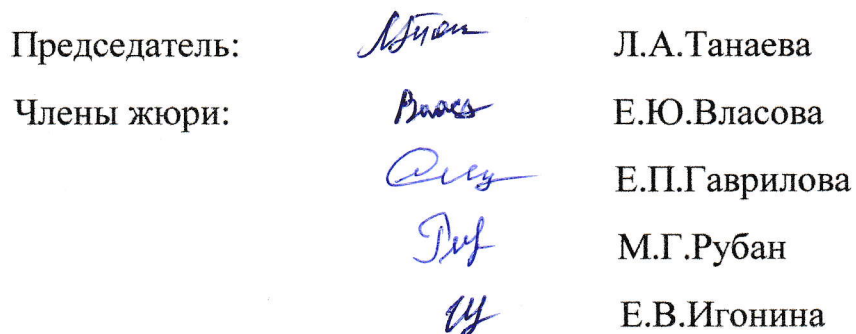 Председатель: Л.А.Танаева
Члены жюри: Е.Ю.Власова
Е.П.Гаврилова
М.Г.Рубан
Е.В.Игонина